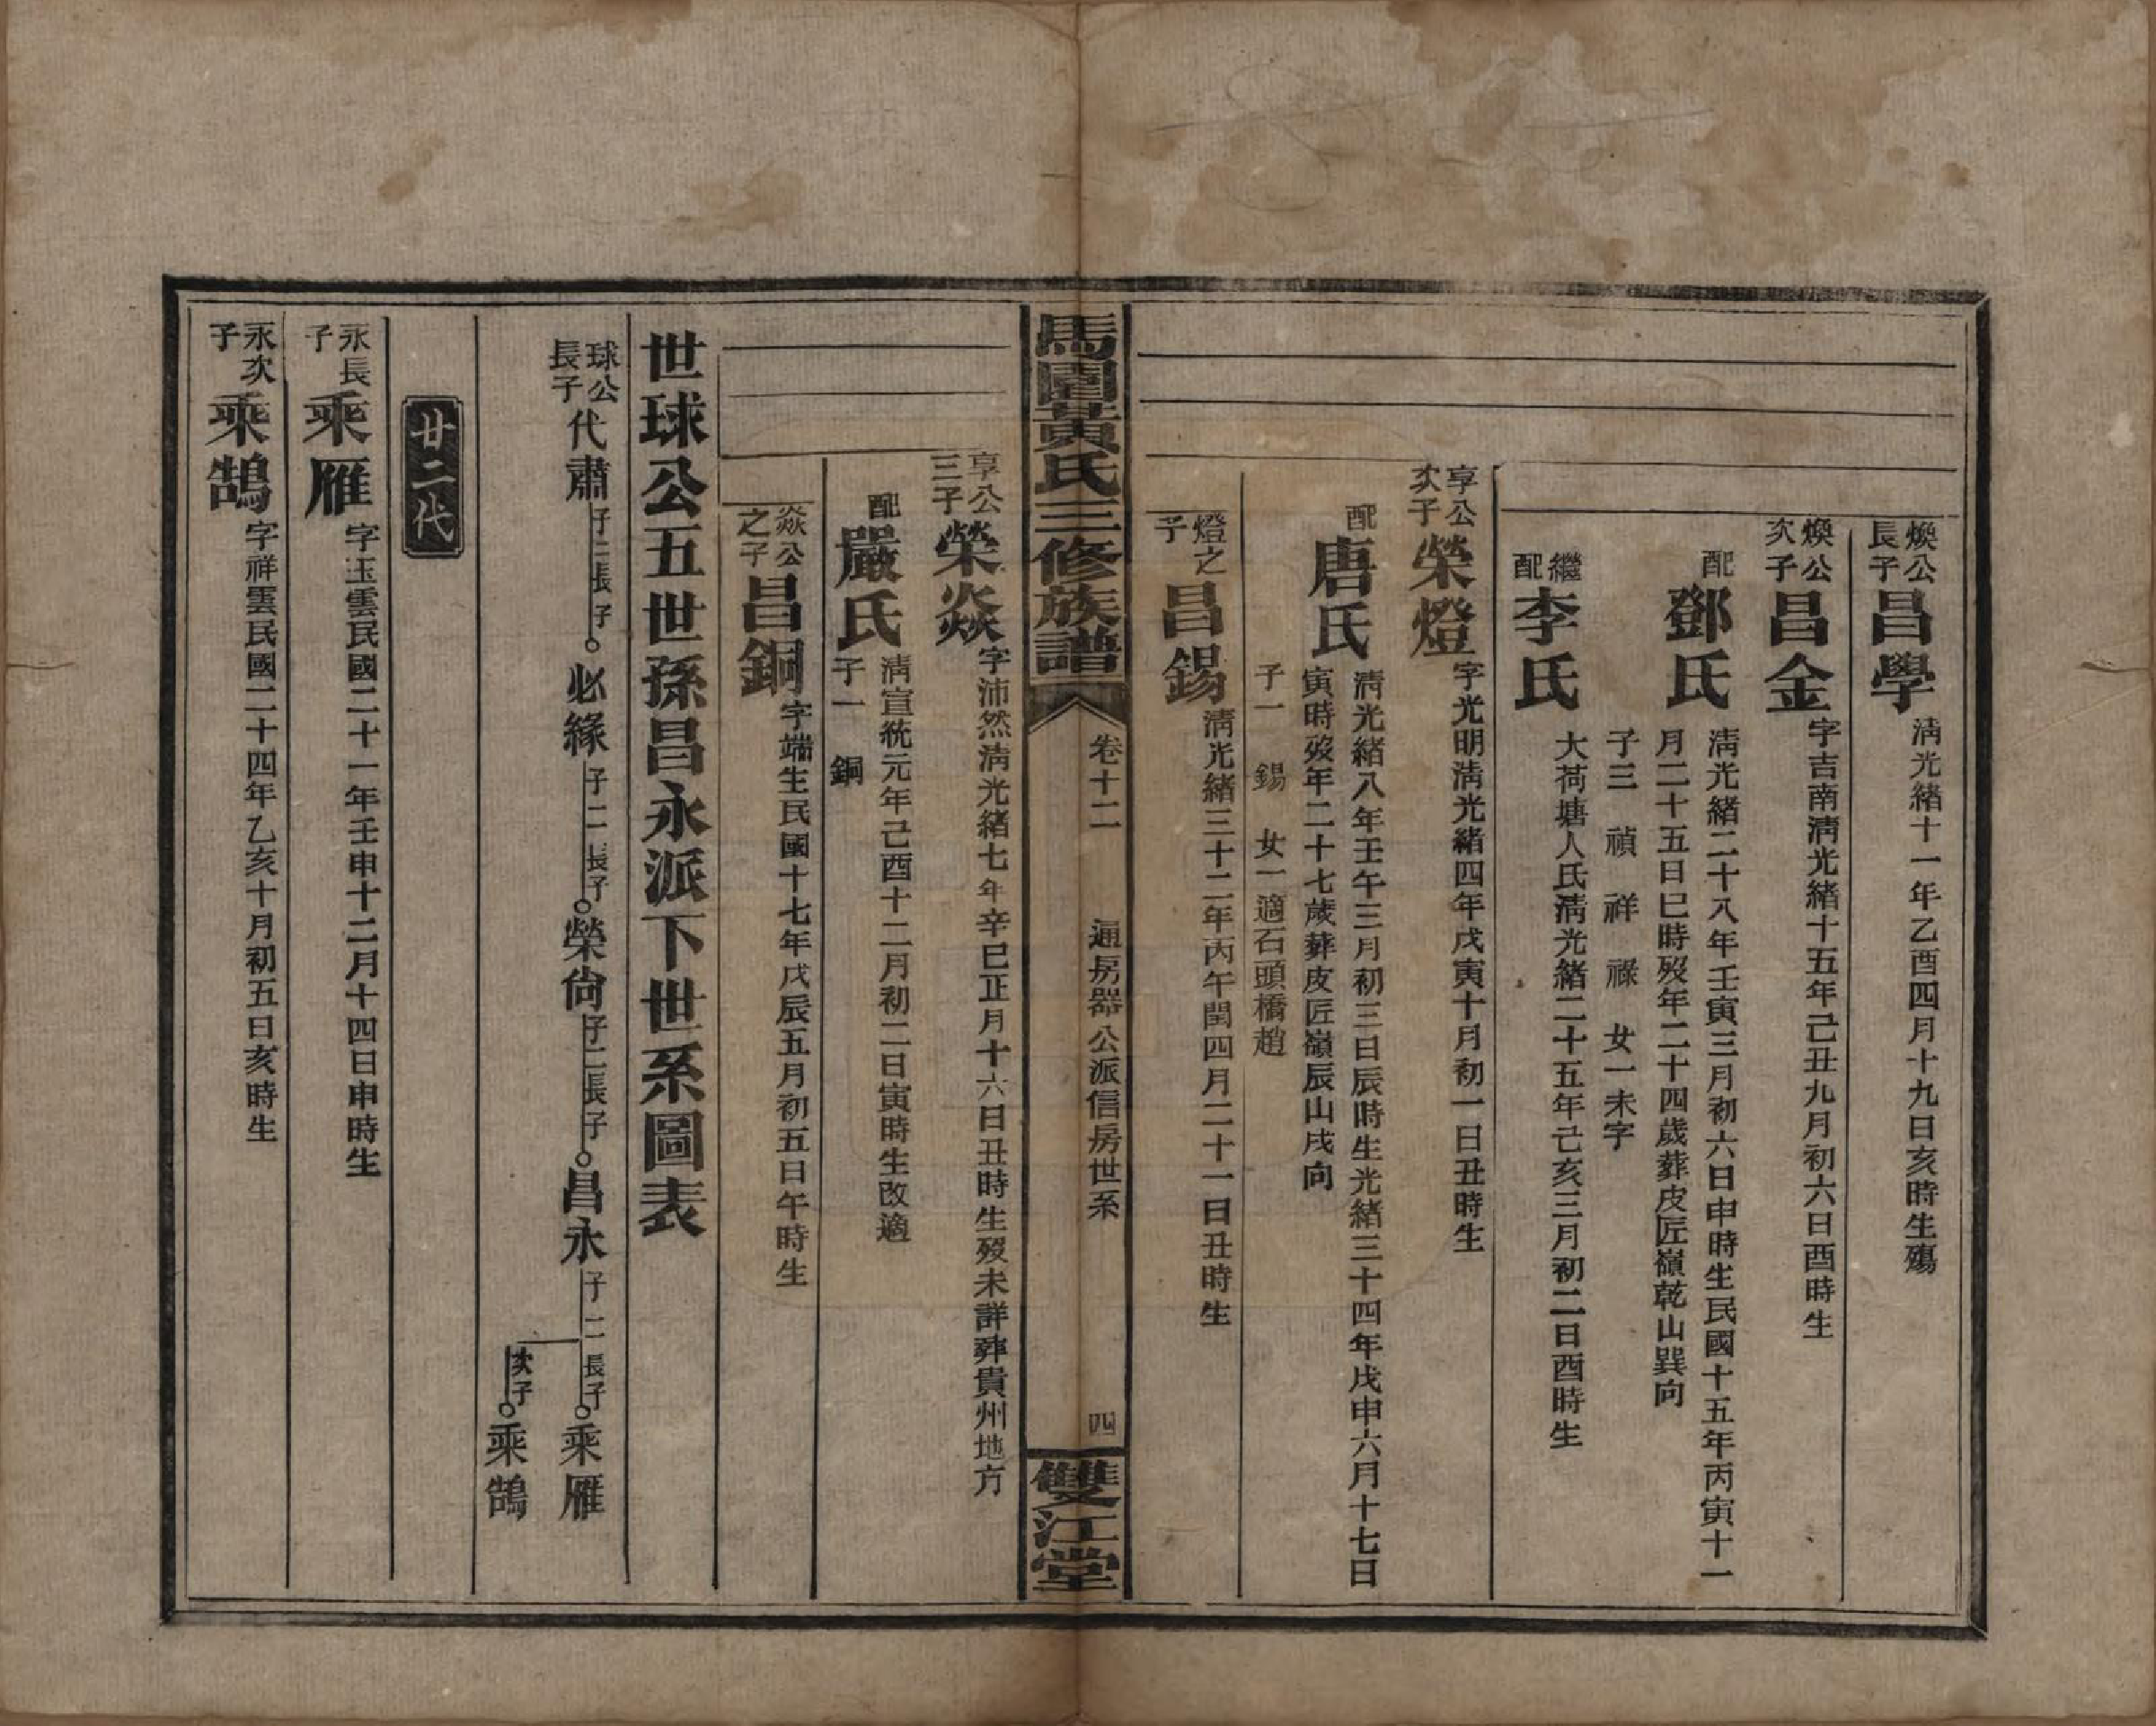 煥公長子 昌學 清光緒十一年乙酉四月十九日亥時生殤
煥公次子 昌金 字吉南清光緒十五年己丑九月初六日酉時生
配 鄧氏 清光緒二十八年壬寅三月初六日申時生民國十五年丙寅十一
月二十五日巳時歿年二十四歲葬皮匠嶺乾山巽向
子三 禎 祥 祿 女一未字
繼配 李氏 大荷塘人氏清光緒二十五年己亥三月初二日酉時生
享公次子 榮燈 字光明清光緒四年戊寅十月初一日丑時生
配 唐氏 清光緒八年壬午三月初三日辰時生光緒三十四年戊申六月十七日
寅時歿年二十七歲葬皮匠嶺辰山戌向
子一 錫 女一適石頭橋趙
燈之子 昌錫 清光緒三十二年丙午閏四月二十一日丑時生
馬園黃氏三修族譜 卷十二 通房器公派信房世系 四 雙江堂
享公三子 榮焱 字沛然清光緒七年辛巳正月十六日丑時生歿未詳葬貴州地方
配 嚴氏 清宣統元年己酉十二月初二日寅時生改適
子一 銅
焱公之子 昌銅 字端生民國十七年戊辰五月初五日午時生
世球公五世孫昌永派下世系圖表
球公長子 代肅 子二長子 必緣 子二長子 榮尙 子二長子 昌永 子二長子 乘雁
次子 乘鵠
廿二代
永長子 乘雁 字玉雲民國二十一年壬申十二月十四日申時生
永次子 乘鵠 字祥雲民國二十四年乙亥十月初五日亥時生